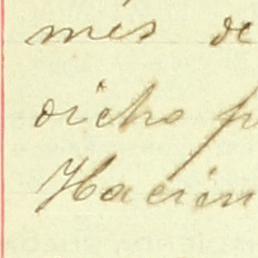 mes de
dicho p
Hacien